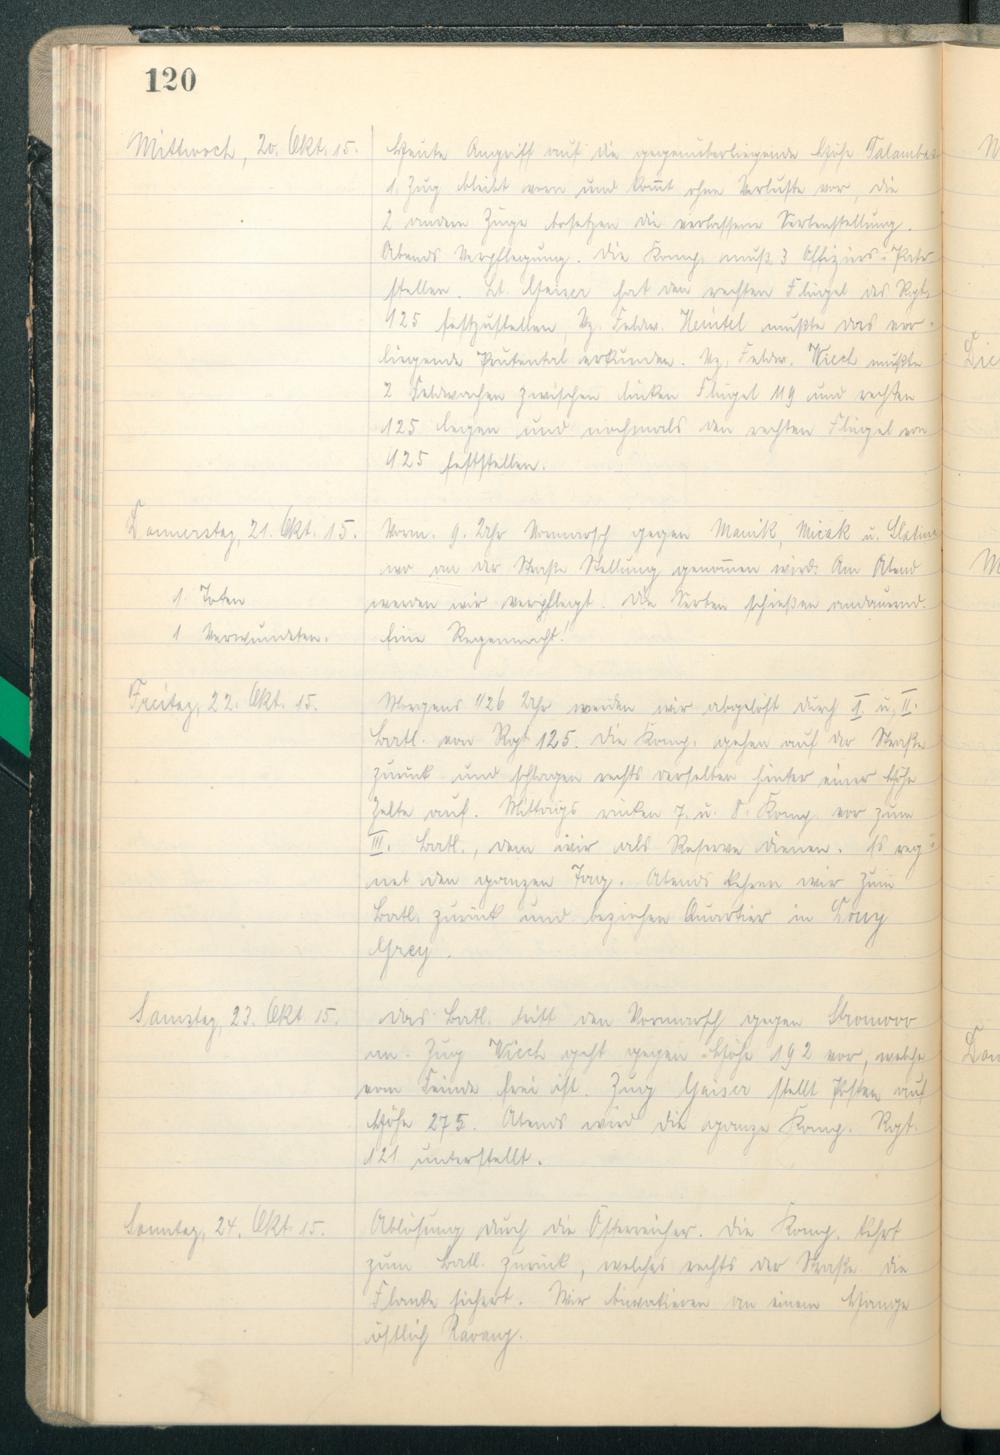 120
Mittwoch, 20. Okt. 15.
Heute Angriff auf die gegenüberliegende Höhe
1. Zug bleibt vorn und kommt ohne Verluste vor, die
2 andern Züge besetzen die verlassene Serbenstellung.
Abends Verpflegung. Die Komp. muß 3 Offiziers-Patr.
stellen. Lt. Geiser hat den rechten Flügel des Rgts.
125 festzustellen, Vz. Feldw. Heintel mußte das vor-
liegende erkunden. Vz. Feldw. Wiech mußte
2 Feldwachen zwischen linken Flügel 119 und rechten
125 legen und nochmals den rechten Flügel von
125 feststellen.
Donnerstag, 21. Okt. 15.
1 Toten
1 Verwundeten.
Vorm. 9. Uhr Vormarsch gegen Manik, Micak u.
wo an der Straße Stellung genom̅en wird. Am Abend
werden wir verpflegt. Die Serben schießen andauernd.
Eine Regennacht!
Freitag, 22. Okt. 15.
Morgens 1/26 Uhr werden wir abgelöst durch I. u. II.
Batl. von Rgt. 125. Die Komp. gehen auf der Straße
zurück und schlagen rechts derselben hinter einer Höhe
Zelte auf. Mittags rücken 7. u. 8. Komp. vor zum
III. Batl., dem wir als Reserve dienen. Es reg-
net den ganzen Tag. Abends kehren wir zum
Batl. zurück und beziehen Quartier in
Samstag, 23. Okt. 15.
Das Batl. tritt den Vormarsch gegen
an. Zug Wiech geht gegen Höhe 192 vor, welche
vom Feinde frei ist. Zug Geiser stellt Posten auf
Höhe 275. Abends wird die ganze Komp. Rgt.
121 unterstellt.
Sonntag, 24. Okt. 15.
Ablösung durch die Österreicher. Die Komp. kehrt
zum Batl. zurück, welches rechts der Straße die
Flanke sichert. Wir biwakieren an einem Hange
östlich